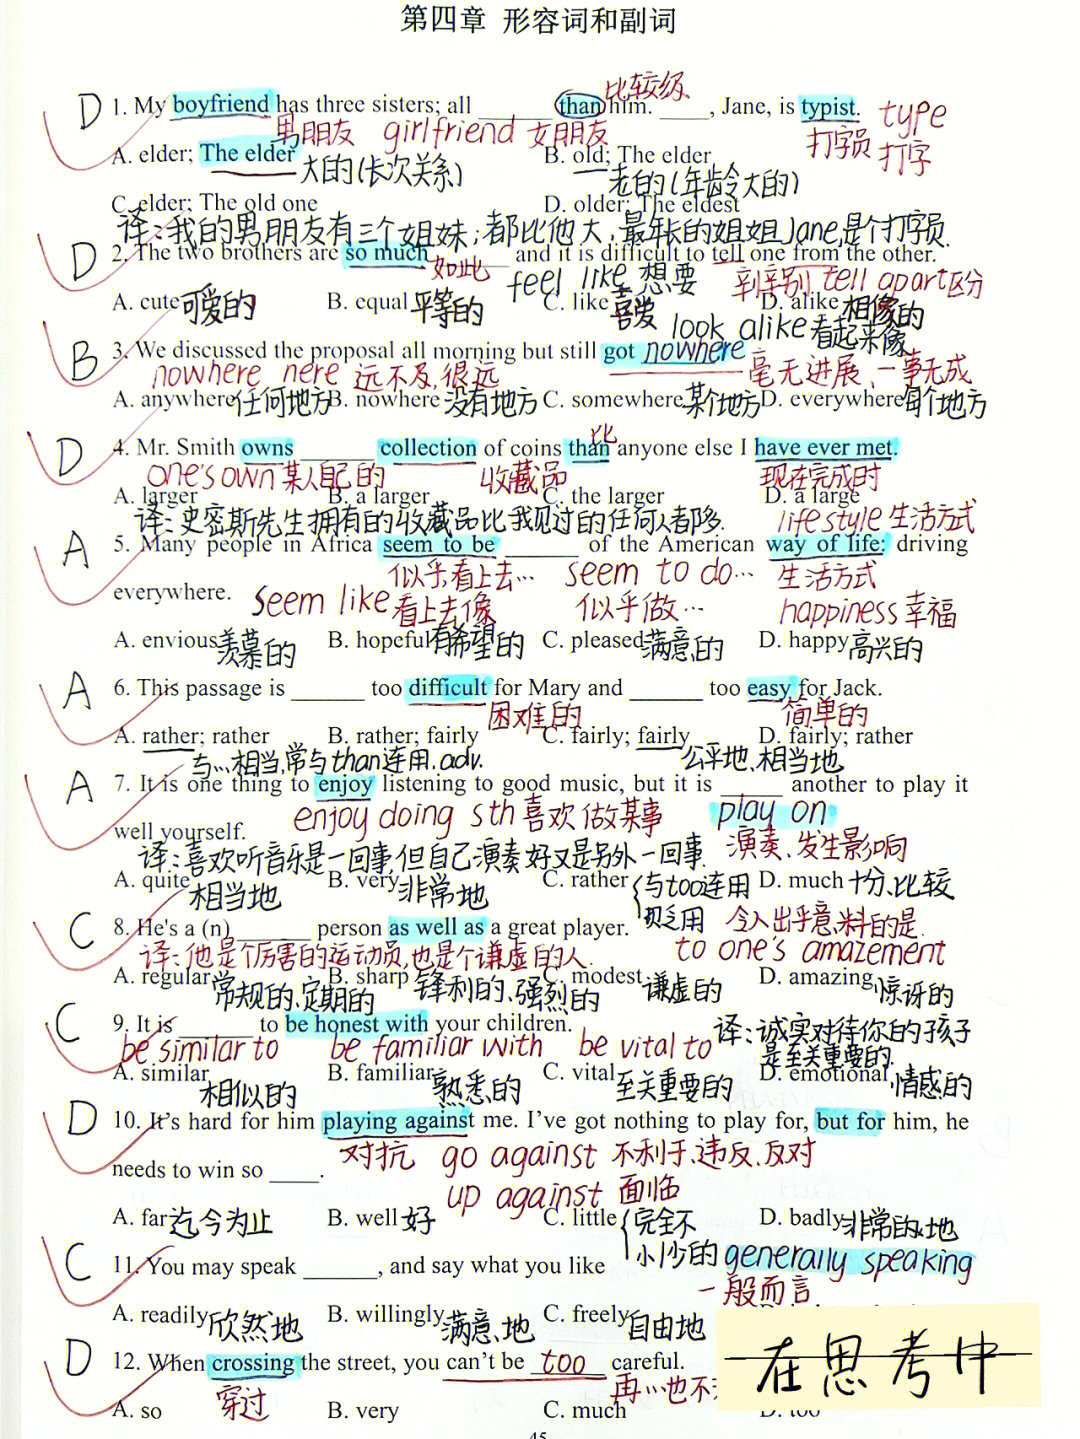 第四章 形容词和副词
比较级
D 1. My boyfriend has three sisters; all ______ than him. ____, Jane, is typist. type
男朋友 girlfriend 女朋友 打字员 打字
A. elder; The elder B. old; The elder
大的(长次关系) 老的(年龄大的)
C. elder; The old one D. older; The eldest
译:我的男朋友有三个姐妹;都比他大,最年长的姐姐Jane,是个打字员.
D 2. The two brothers are so much ______ and it is difficult to tell one from the other.
如此 feel like 想要 辛辛别 tell apart区分
A. cute 可爱的 B. equal 平等的 C. like 喜爱 D. alike 相像的
look alike 看起来像
B 3. We discussed the proposal all morning but still got nowhere
nowhere nere 远不及,很远 毫无进展、一事无成
A. anywhere任何地方 B. nowhere 没有地方 C. somewhere某个地方 D. everywhere每个地方
比
D 4. Mr. Smith owns ______ collection of coins than anyone else I have ever met.
one's own 某人自己的 收藏品 现在完成时
A. larger B. a larger C. the larger D. a large
译:史密斯先生拥有的收藏品比我见过的任何人都多. lifestyle 生活方式
A 5. Many people in Africa seem to be ______ of the American way of life: driving
似乎;看上去… seem to do… 生活方式
everywhere. seem like 看上去像 似乎做… happiness 幸福
A. envious羡慕的 B. hopeful有希望的 C. pleased满意的 D. happy高兴的
A 6. This passage is ______ too difficult for Mary and ______ too easy for Jack.
困难的 简单的
A. rather; rather B. rather; fairly C. fairly; fairly D. fairly; rather
与…相当,常与than连用.adv. 公平地、相当地
A 7. It is one thing to enjoy listening to good music, but it is _____ another to play it
enjoy doing sth 喜欢做某事 play on
well yourself. 演奏、发生影响
译:喜欢听音乐是一回事,但自己演奏好又是另外一回事.
A. quite 相当地 B. very 非常地 C. rather 与too连用 D. much 十分、比较
贬义用 令人出乎意料的是.
C 8. He's a (n) ______ person as well as a great player.
译:他是个厉害的运动员,也是个谦虚的人. to one's amazement
A. regular常规的、定期的 B. sharp 锋利的、强烈的 C. modest谦虚的 D. amazing惊讶的
C 9. It is ______ to be honest with your children. 译:诚实对待你的孩子
be similar to be familiar with be vital to 是至关重要的.
A. similar 相似的 B. familiar 熟悉的 C. vital 至关重要的 D. emotional 情感的
D 10. It’s hard for him playing against me. I’ve got nothing to play for, but for him, he
对抗 go against 不利于、违反、反对
needs to win so ____.
up against 面临
A. far 迄今为止 B. well 好 C. little 完全不 D. badly非常的、地
小|少的 generally speaking
C 11. You may speak ______, and say what you like
一般而言
A. readily欣然地 B. willingly满意地 C. freely自由地
D 12. When crossing the street, you can’t be too careful.
穿过 再…也不
在思考中
A. so B. very C. much D. too
45